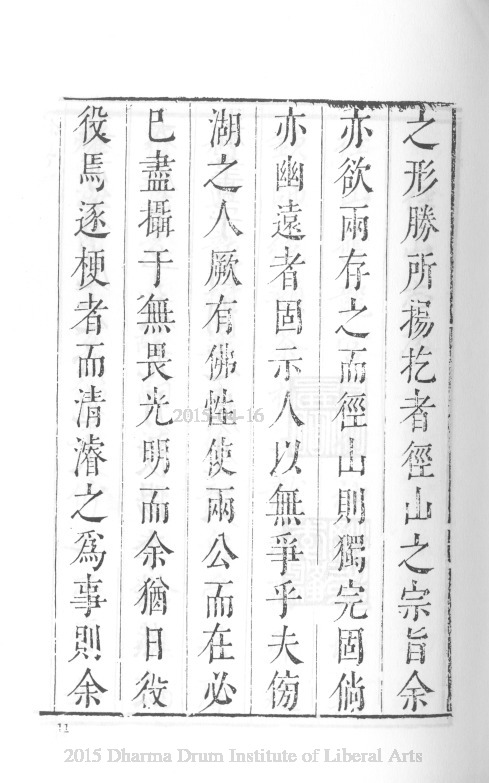 之形勝所揚扢者徑山之宗旨余
亦欲兩存之而徑山則獨完固倘
亦幽遠者固示人以無爭乎夫傍
湖之人厥有佛性使兩公而在必
已盡攝于無畏光明而余猶日役
役焉逐梗者而清濬之為事則余
2015-04-16
11
2015 Dharma Drum Institute of Liberal Arts